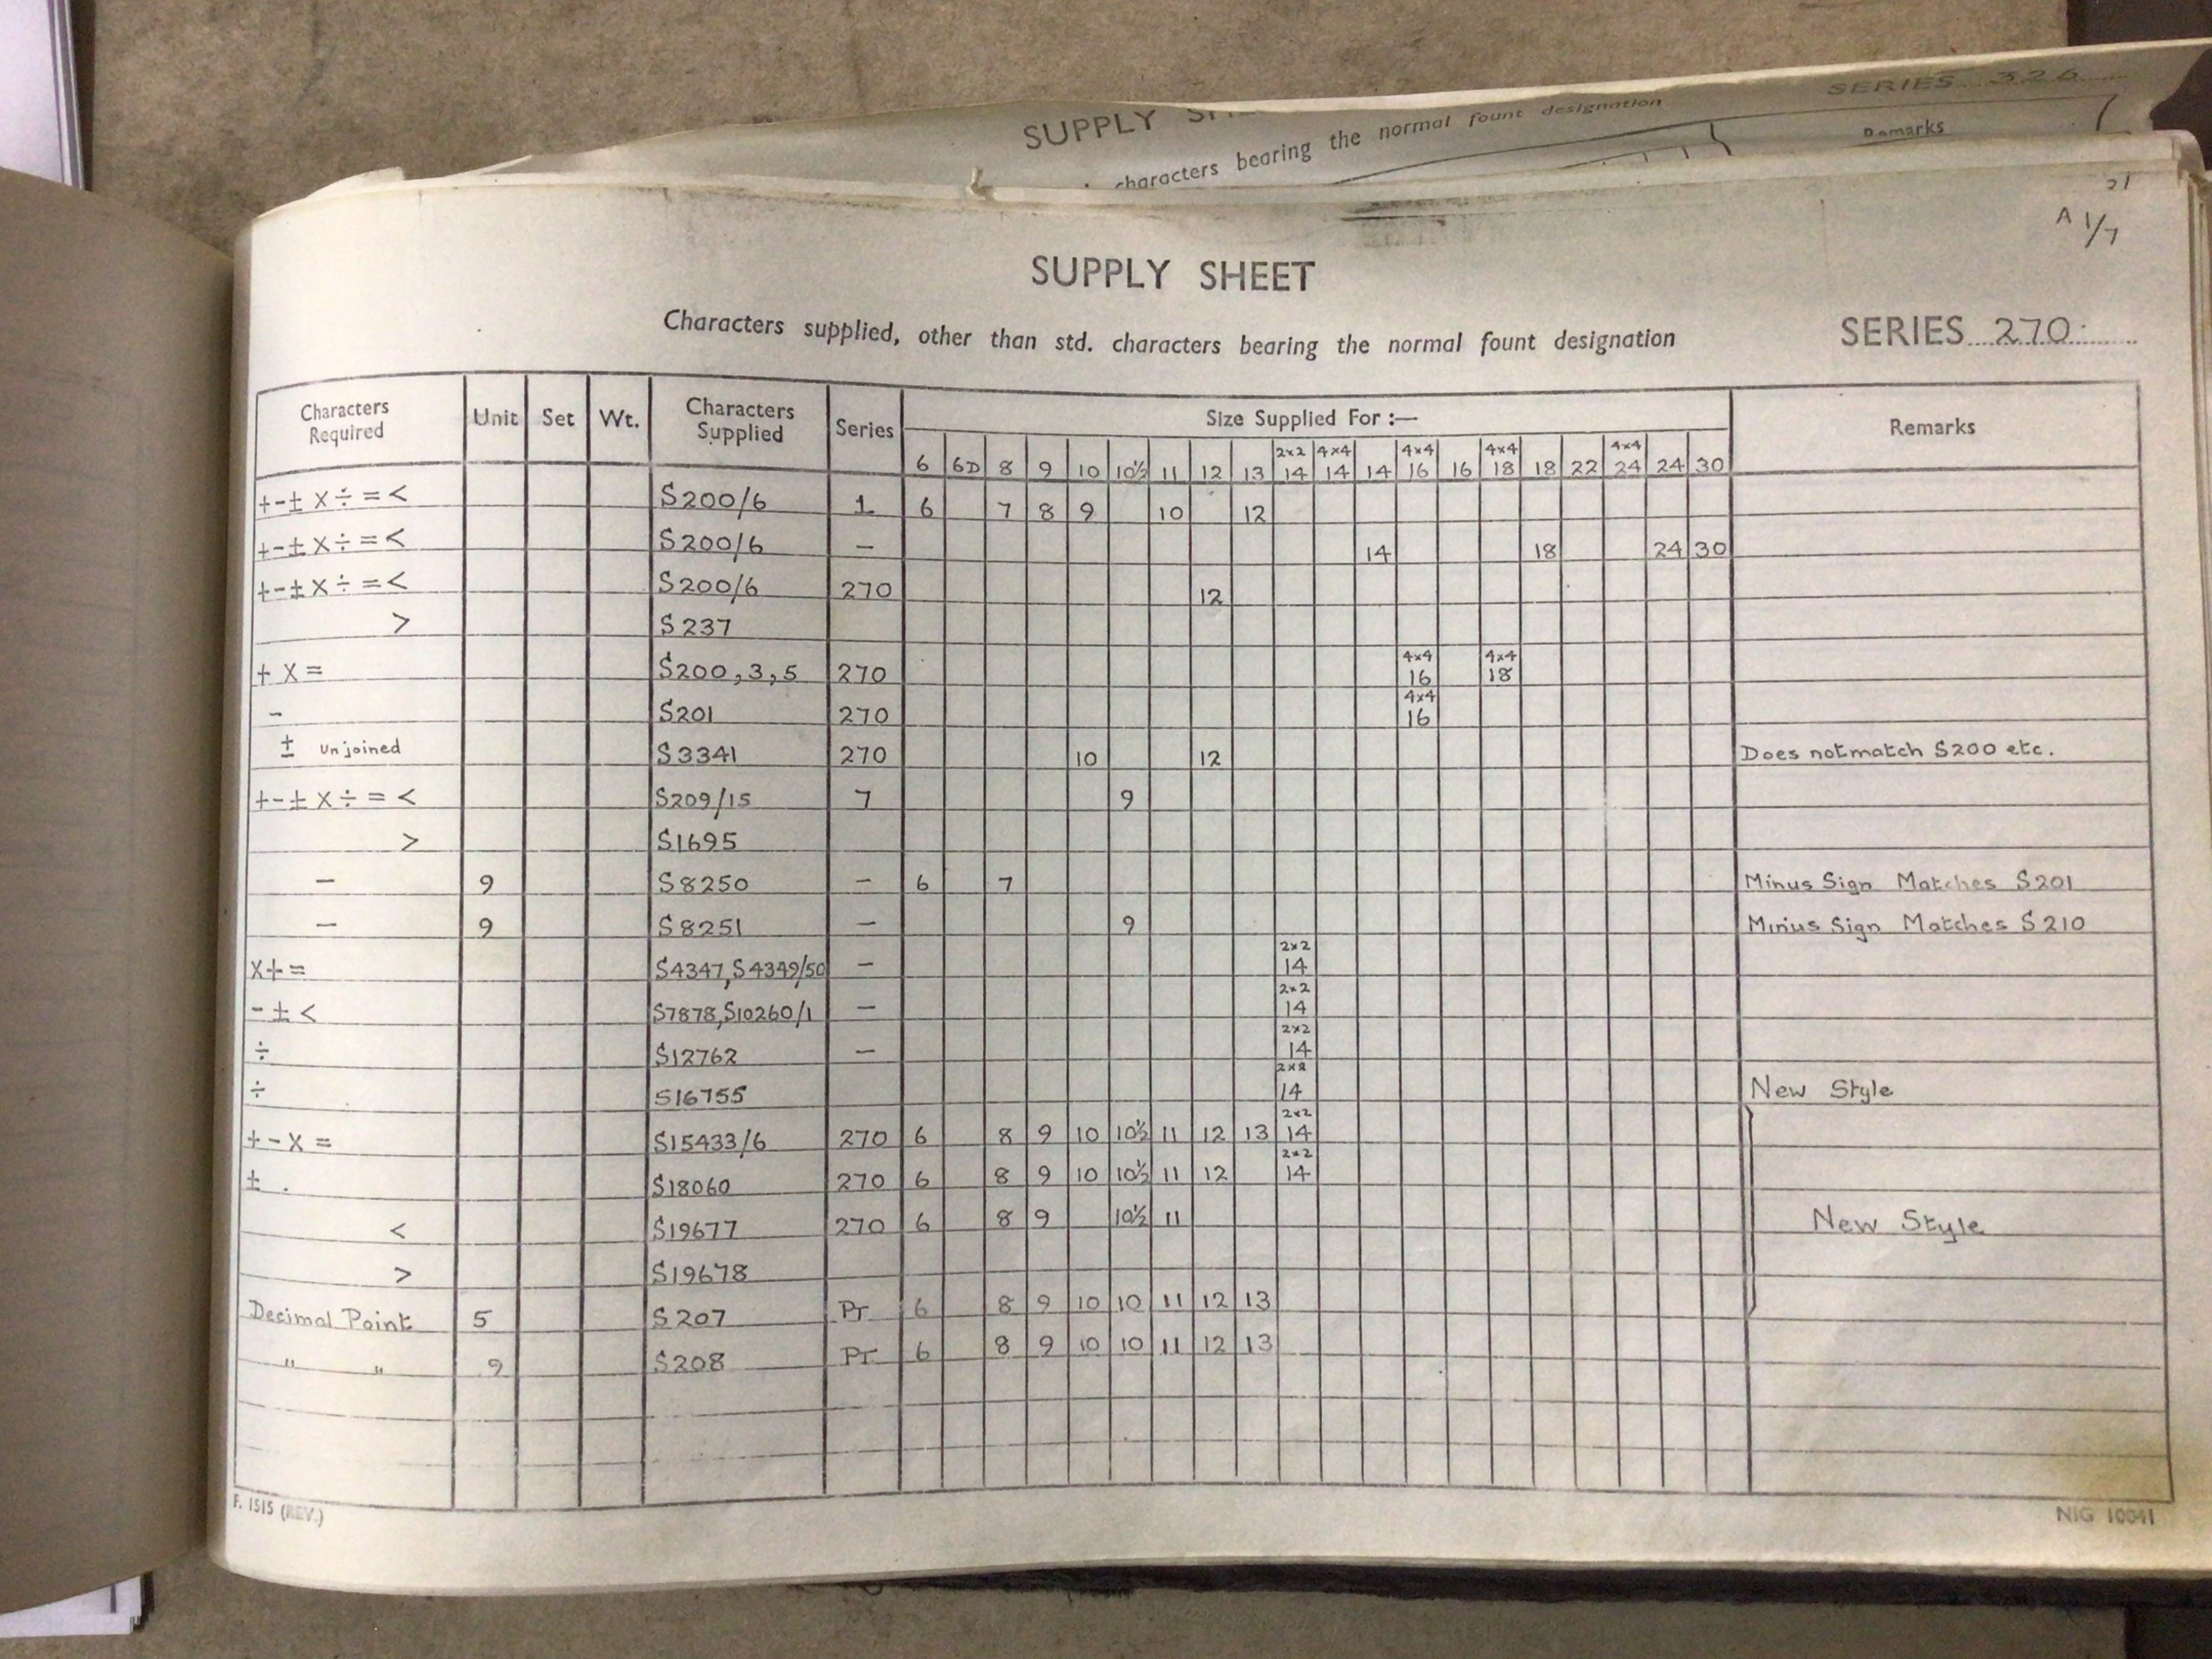 SERIES 326
SUPPLY
characters bearing the normal fount designation
Remarks
21
A 1/7
SUPPLY SHEET
Characters supplied, other than std. characters bearing the normal fount designation
SERIES 270
Characters Required Unit Set Wt. Characters Supplied Series Size Supplied For :— Remarks
6 6D 8 9 10 10½ 11 12 13 2x2 14 4x4 14 14 4x4 16 16 4x4 18 18 22 4x4 24 24 30
+ - ± x ÷ = < S200/6 1 6 7 8 9 10 12
+ - ± x ÷ = < S200/6 — 14 18 24 30
+ - ± x ÷ = < S200/6 270 12
> S237
+ x = S200,3,5 270 4x4 16 4x4 18
- S201 270 4x4 16
± Unjoined S3341 270 10 12 Does not match S200 etc.
+ - ± x ÷ = < S209/15 7 9
> S1695
— 9 S8250 — 6 7 Minus Sign Matches S201
— 9 S8251 — 9 Minus Sign Matches S210
x + = S4347, S4349/50 — 2x2 14
- ± < S7878, S10260/1 — 2x2 14
÷ S12762 — 2x2 14
÷ S16755 2x2 14 New Style
+ - x = S15433/6 270 6 8 9 10 10½ 11 12 13 2x2 14
± . S18060 270 6 8 9 10 10½ 11 12 2x2 14
< S19677 270 6 8 9 10½ 11 New Style
> S19678
Decimal Point 5 S207 Pr 6 8 9 10 10 11 12 13
" " 9 S208 Pr 6 8 9 10 10 11 12 13
F. 1515 (REV.)
NIG 10041